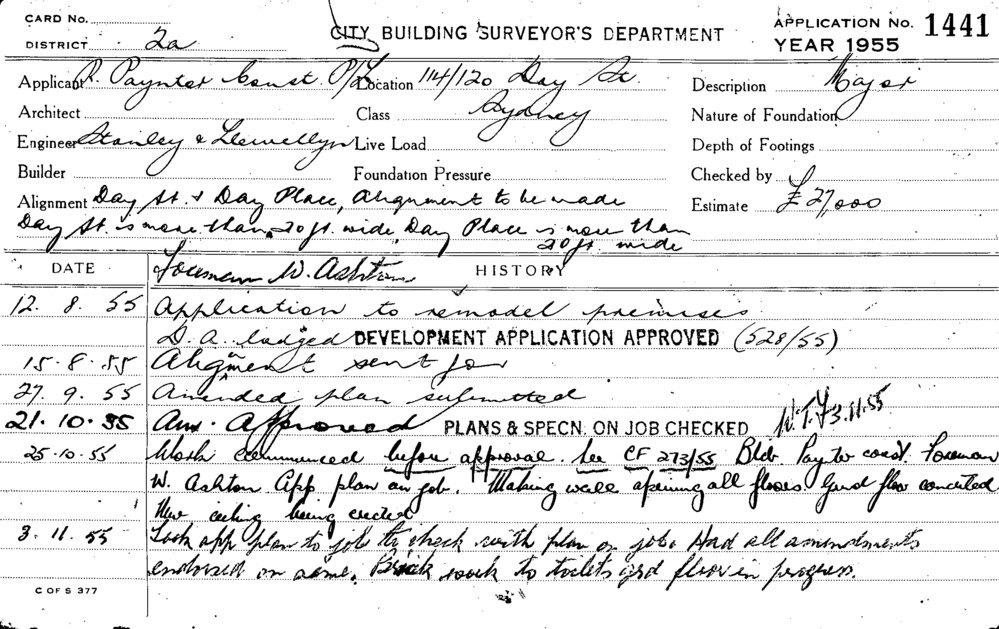 CARD No.
CITY BUILDING SURVEYOR'S DEPARTMENT
APPLICATION No. 1441
DISTRICT 2a
YEAR 1955
Applicant R. Paynter Const. P/L Location 114/120 Day St.
Description Major
Architect Class Sydney
Nature of Foundation
Engineer Stanley & Llewellyn Live Load
Depth of Footings
Builder Foundation Pressure
Checked by
Alignment Day St. & Day Place, Alignment to be made
Estimate £27,000
Day St. is more than 20 ft. wide, Day Place is more than
20 ft. wide
DATE Foreman W. Ashton HISTORY
12. 8. 55 Application to remodel premises
D. A. lodged DEVELOPMENT APPLICATION APPROVED (528/55)
15. 8. 55 Alignment sent for
27. 9. 55 Amended plan submitted
21. 10. 55 Am. Approved PLANS & SPECN. ON JOB CHECKED 3.11.55
25. 10. 55 Work commenced before approval. See CF 273/55 Bldr. Payter const. Foreman
W. Ashton App. plan on job. Making wall opening all floors. Grnd floor concreted
New ceiling being erected
3. 11. 55 Took app plan to job to check with plan on job. Had all amendments
endorsed on same. Brick work to toilets grd floor in progress.
C OF S 377